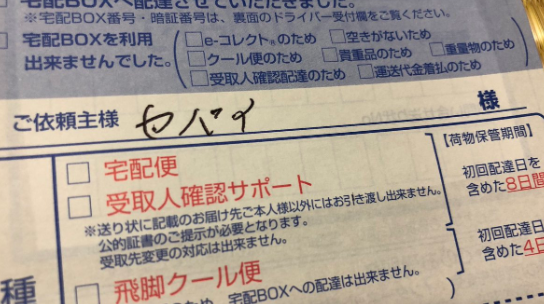 宅配BOXへ配達させていただきました。
※宅配BOX番号・暗証番号は、裏面のドライバー受付欄をご覧ください。
宅配BOXを利用
出来ませんでした。
e-コレクト®のため
空きがないため
クール便のため
貴重品のため
重量物のため
受取人確認配達のため
運送代金着払のため
ご依頼主様
セバイ
様
宅配便
受取人確認サポート
※送り状に記載のお届け先ご本人様以外にはお引き渡し出来ません。
公的証書のご提示が必要となります。
受取先変更の対応は出来ません。
飛脚クール便
ため、宅配BOXへの配達は出来ません。
種
【荷物保管期間】
初回配達日を
含めた8日間
初回配達日
含めた4日